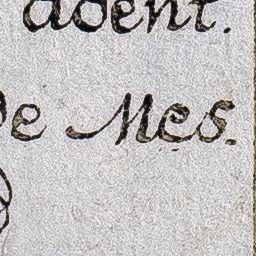 adent.
e Mes.